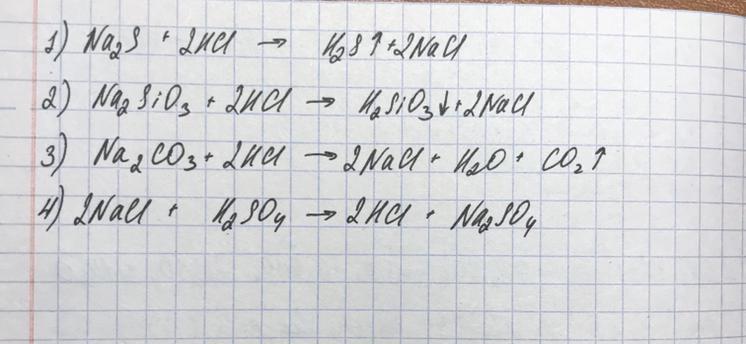 1) Na₂S + 2HCl → H₂S↑ + 2NaCl
2) Na₂SiO₃ + 2HCl → H₂SiO₃↓ + 2NaCl
3) Na₂CO₃ + 2HCl → 2NaCl + H₂O + CO₂↑
4) 2NaCl + H₂SO₄ → 2HCl + Na₂SO₄